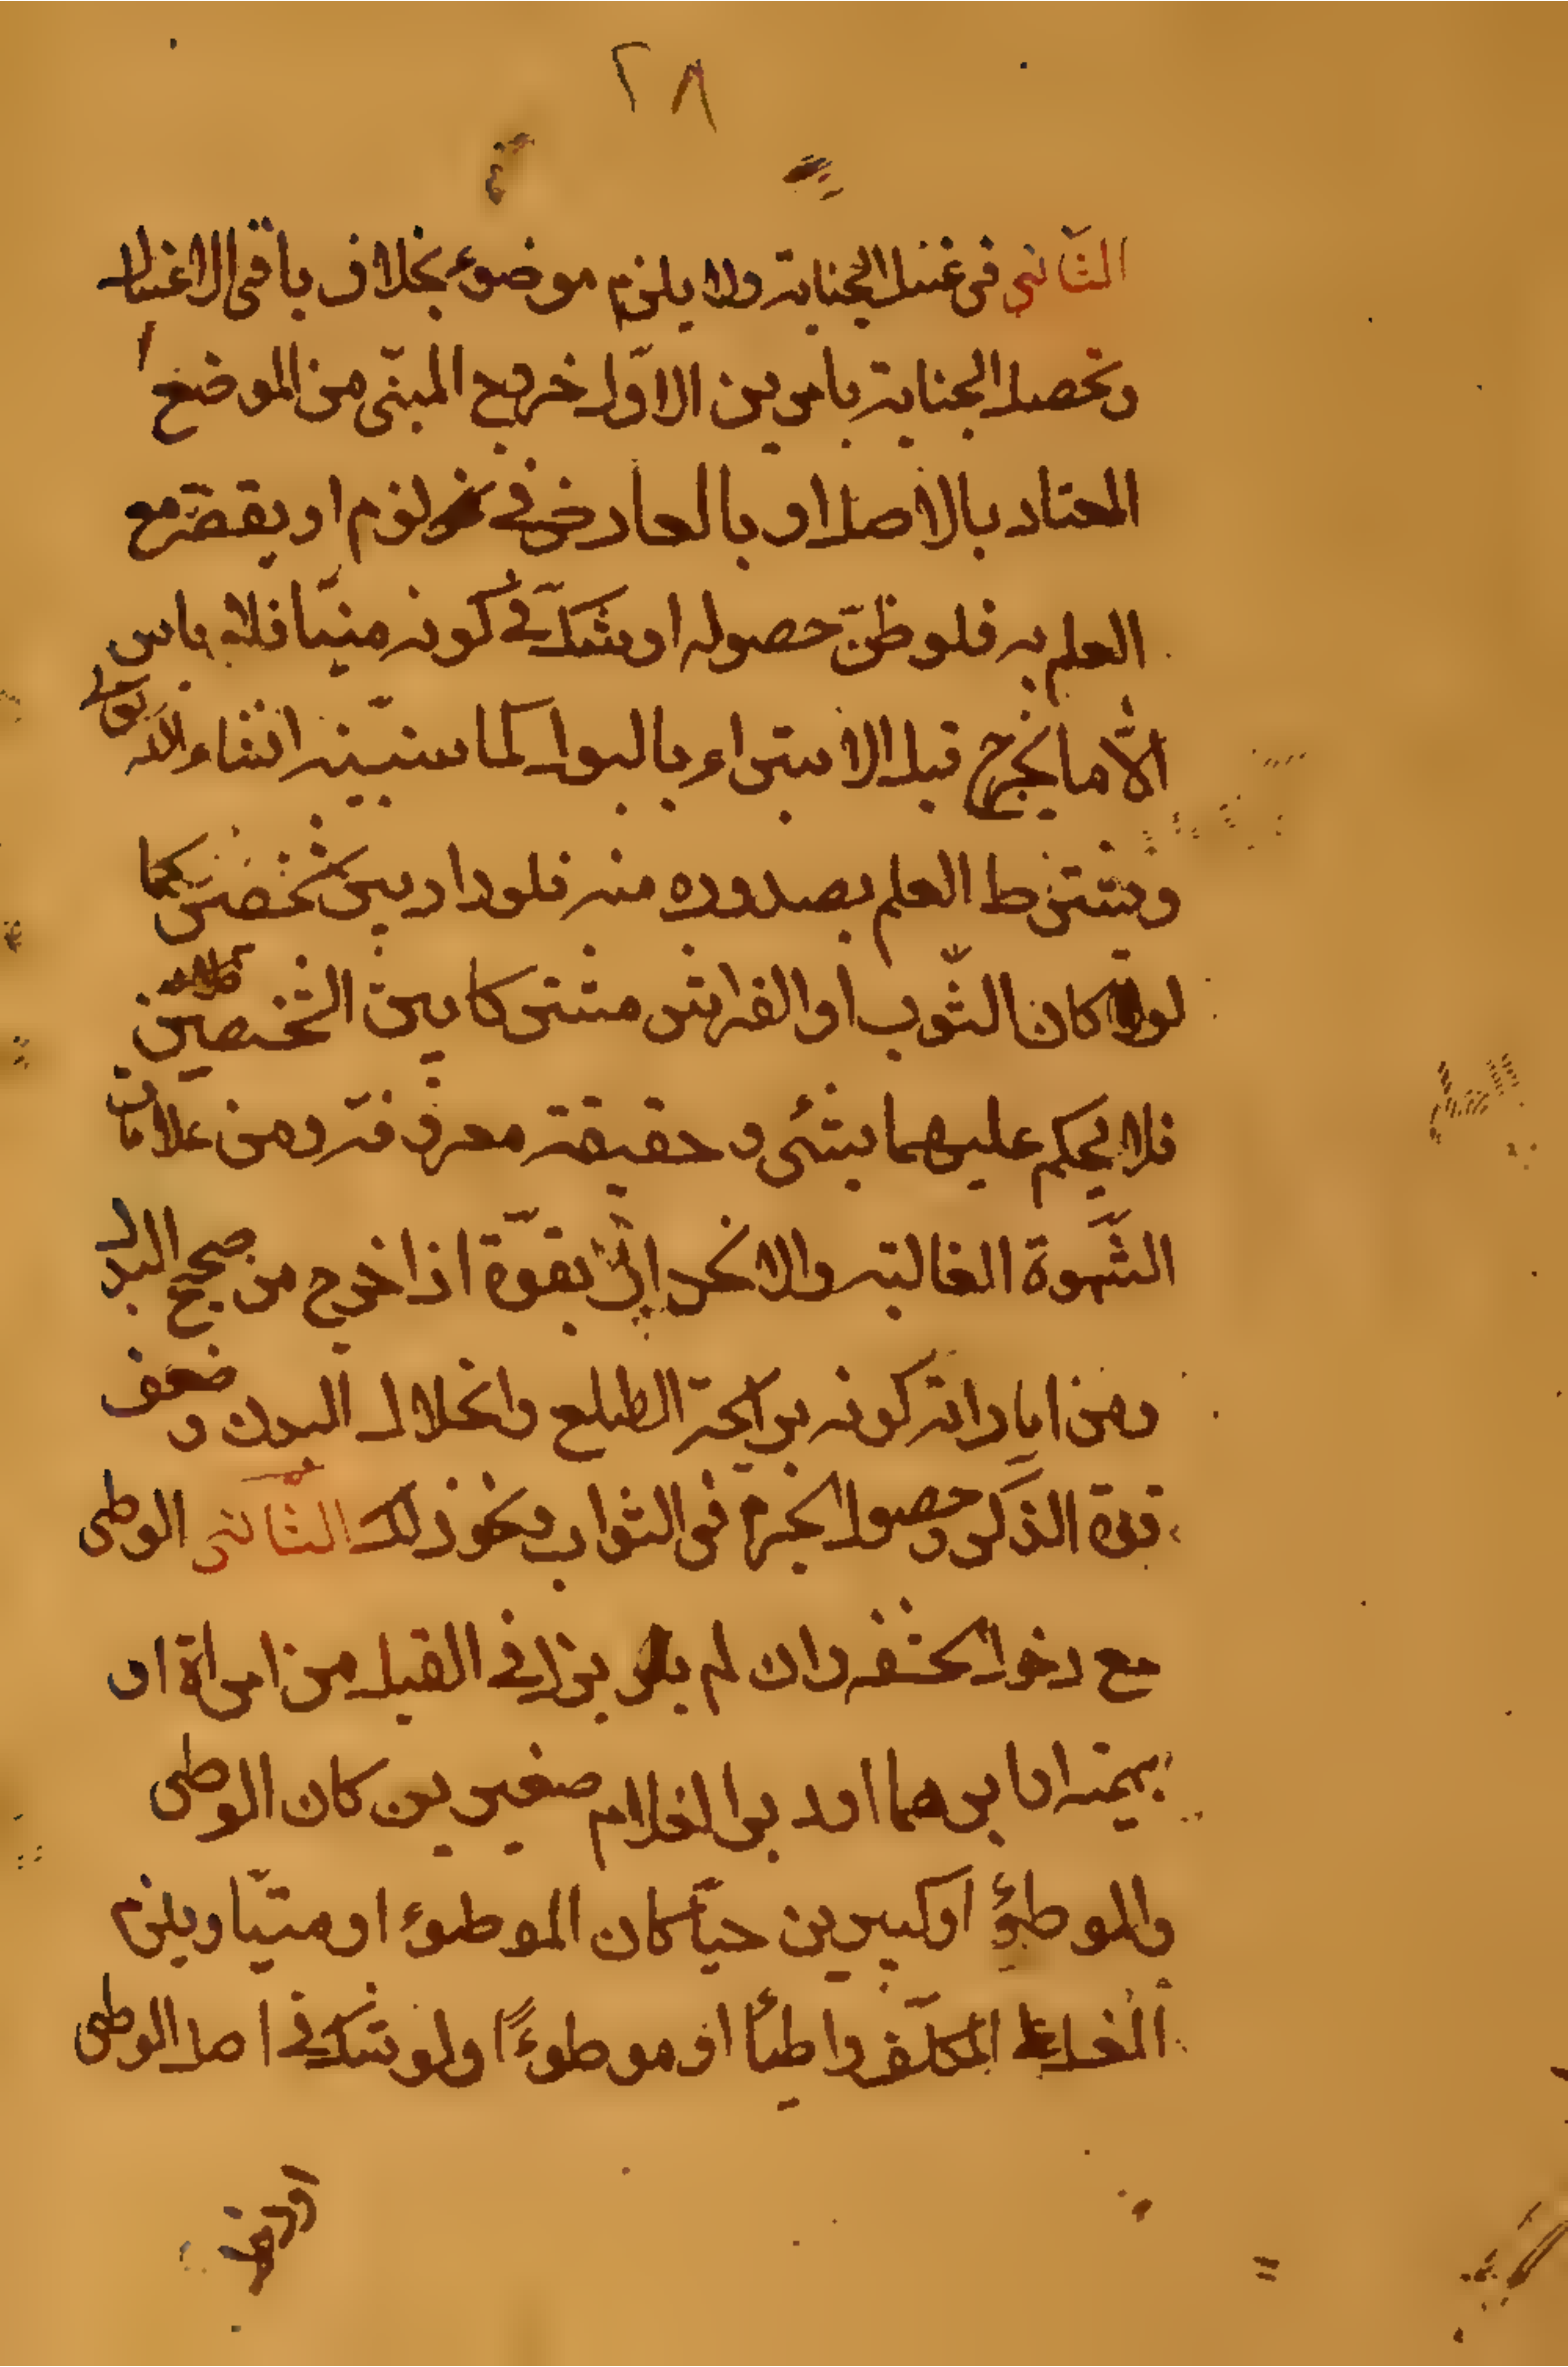 ٢٨
الثّاني في غسل الجنابة ولا يلزم موضوء بخلاف باقي الاغسال
وتحصل الجنابة بامرين الاوّل خروج المنّى من الموضع
المعتاد بالاصل او بالعارض في نوم او يقظة مع
العلم به فلو ظنّ حصوله او شكّ في كونه منيّا فلا باس
الّا ما يخرج قبل الاستبراء بالبول كما سنبيّنه انشاء الله تعالى
ويشترط العلم بصدوره منه فلو دار بين شخصين كما
لو كان الثّوب او الفراش مشتركا بين الشخصين
فلا يحكم عليهما بشئ و حقيقته معروفة ومن علامات
الشّهوة الغالبة والانحدار بقوّة اذا خرج من صحيح البدن
ومن اماراته كونه برايحة الطلع وانحلال البدن و ضعف
قوة الذكر و حصول في الثواب ونحو ذلك الثّاني الوطى
مع دخول الحشفه وان لم ينزل في القبل من امراة او
بهيمة او دبرهما او دبر الغلام صغيرين كان الوطى
والموطؤ او كبيرين حيّا كان الموطوء او ميّتا ويلزم
الغسل المكلّف واطيأ او موطوءًا ولو شك في اصل الوطى